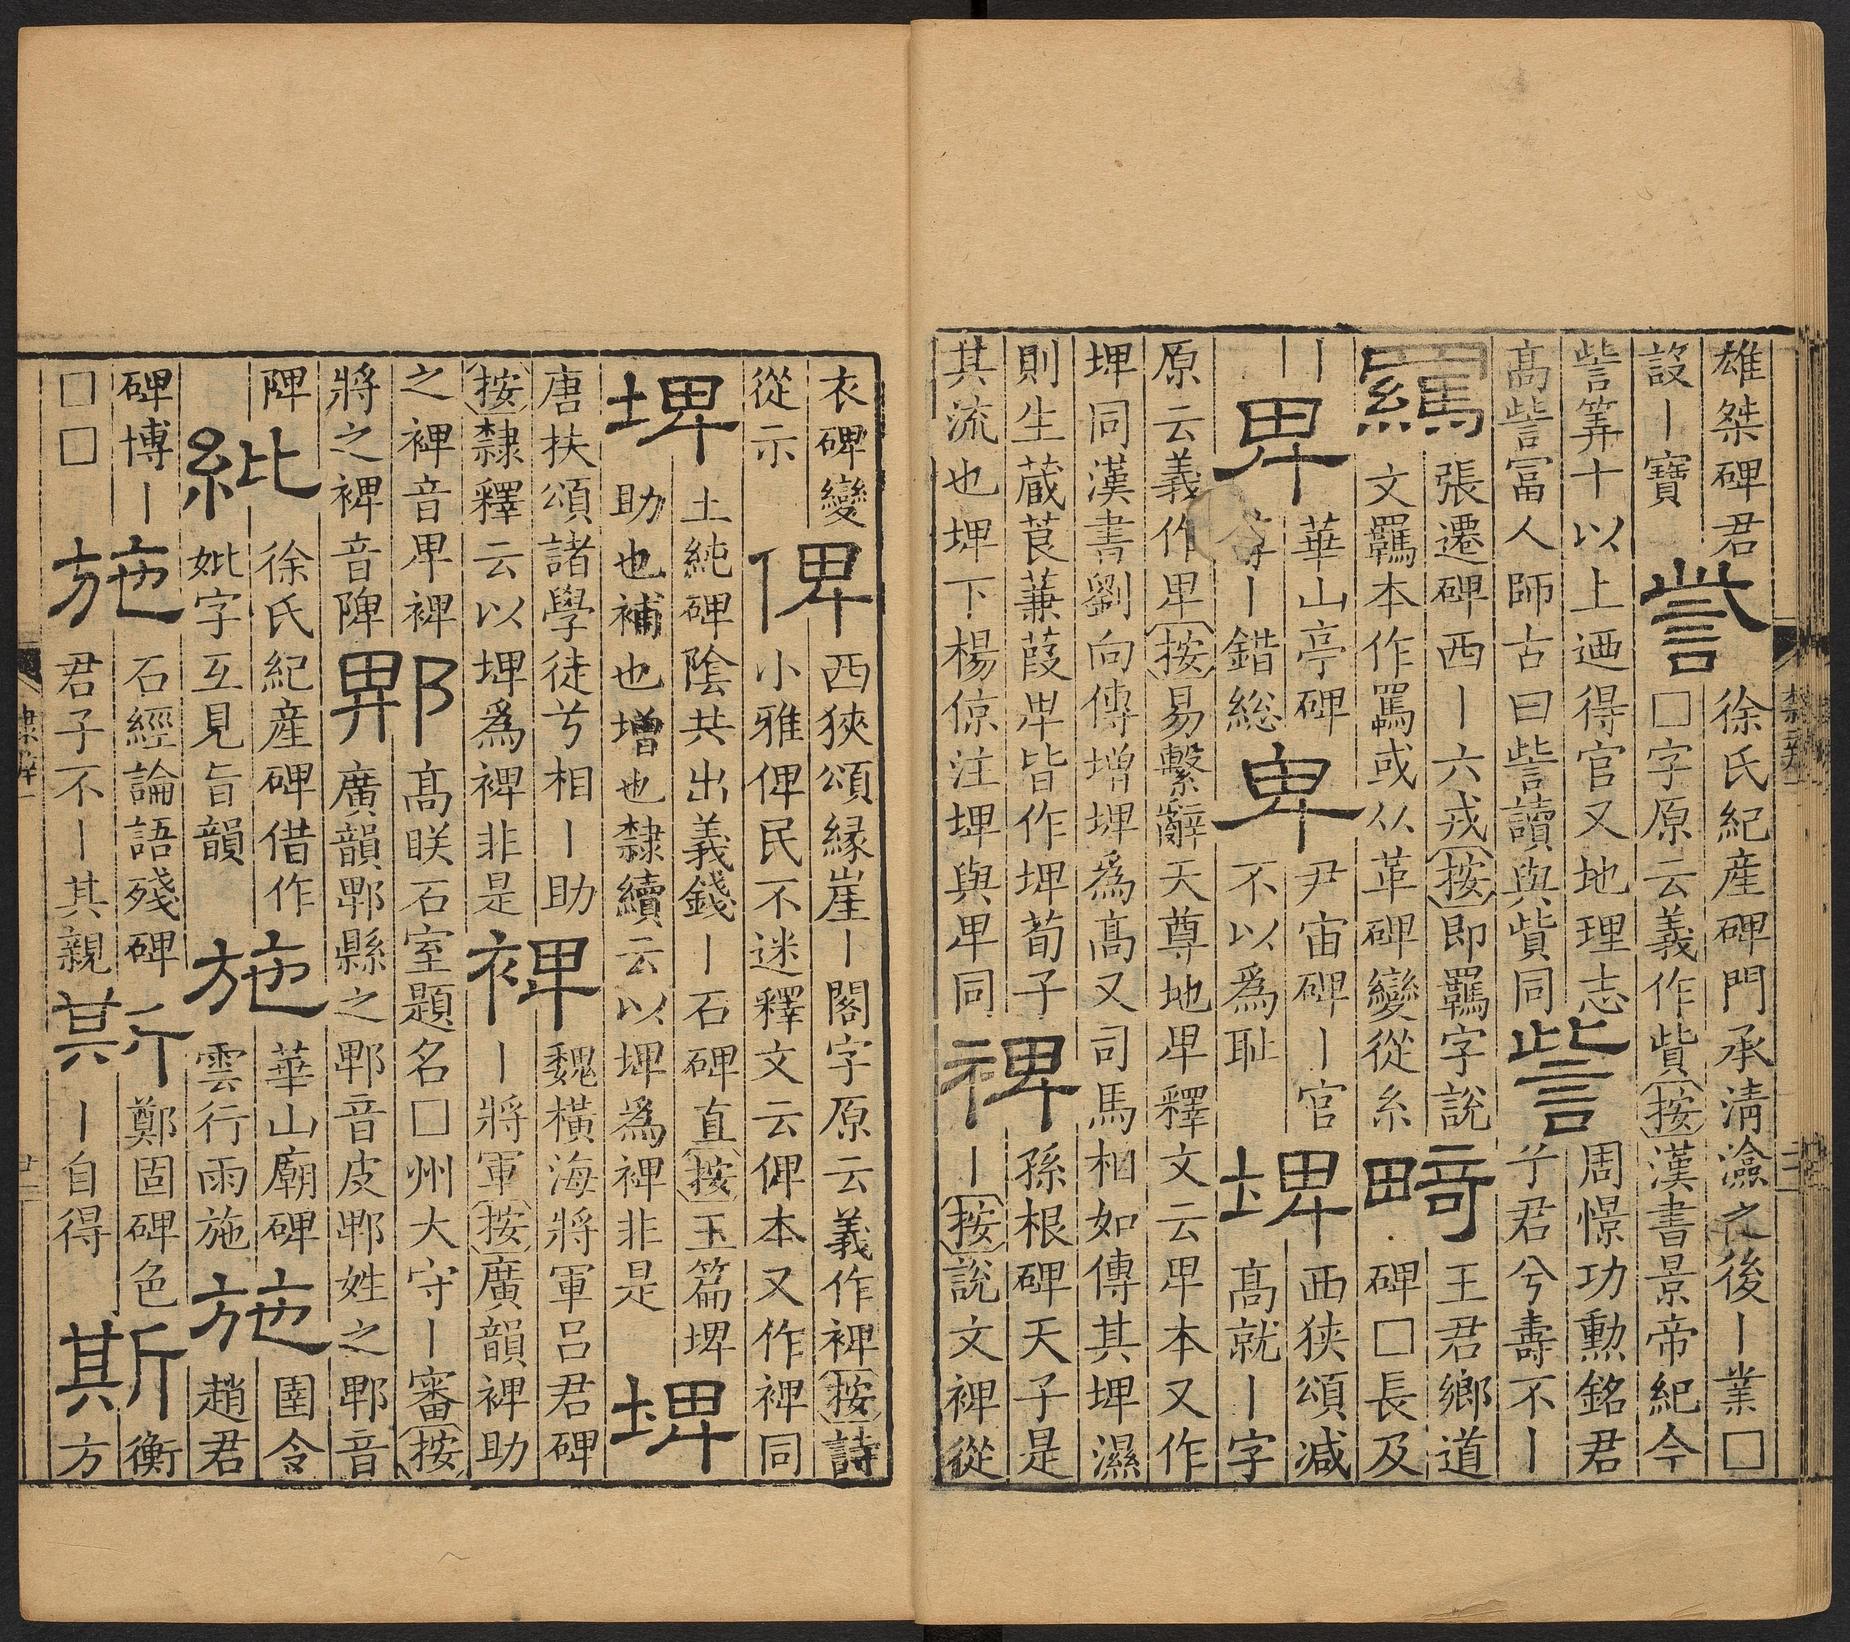 雄桀碑君
設丨寶
訾
徐氏紀產碑門承清澰之後丨業□
□字原云義作貲按漢書景帝紀今
訾筭十以上迺得官又地理志
高訾冨人師古曰訾讀與貲同
訾
周憬功勲銘君
于君兮壽不丨
羈
張遷碑西丨六戎按即羈字說
文羈本作䮠或从革碑變從糸
畸
王君鄉道
碑□長及
丨
丨
卑
華山亭碑
丨錯総
卑
尹宙碑丨官
不以爲耻
埤
西狹頌减
高就丨字
原云義作卑按易繫辭天尊地卑釋文云卑本又作
埤同漢書劉向傳增埤爲高又司馬相如傳其埤濕
則生蔵莨蒹葭卑皆作埤荀子
其流也埤下楊倞注埤與卑同
裨
孫根碑天子是
丨按說文裨從
衣碑變
從示
俾
西狹頌縁崖丨閣字原云義作裨按詩
小雅俾民不迷釋文云俾本又作裨同
埤
土純碑陰共出義錢丨石碑直按玉篇埤
助也補也增也隸續云以埤爲裨非是
埤
唐扶頌諸學徒兮相丨助
按隸釋云以埤爲裨非是
裨
魏橫海將軍呂君碑
丨將軍按廣韻裨助
之裨音卑裨
將之裨音陴
郫
高眹石室題名□州大守丨審按
廣韻郫縣之郫音皮郫姓之郫音
陴
紕
徐氏紀產碑借作
妣字互見旨韻
施
華山廟碑
雲行雨施
施
圉令
趙君
碑博丨
□□
施
石經論語殘碑
君子不丨其親
斯
鄭固碑色
丨自得
斯
衡
方